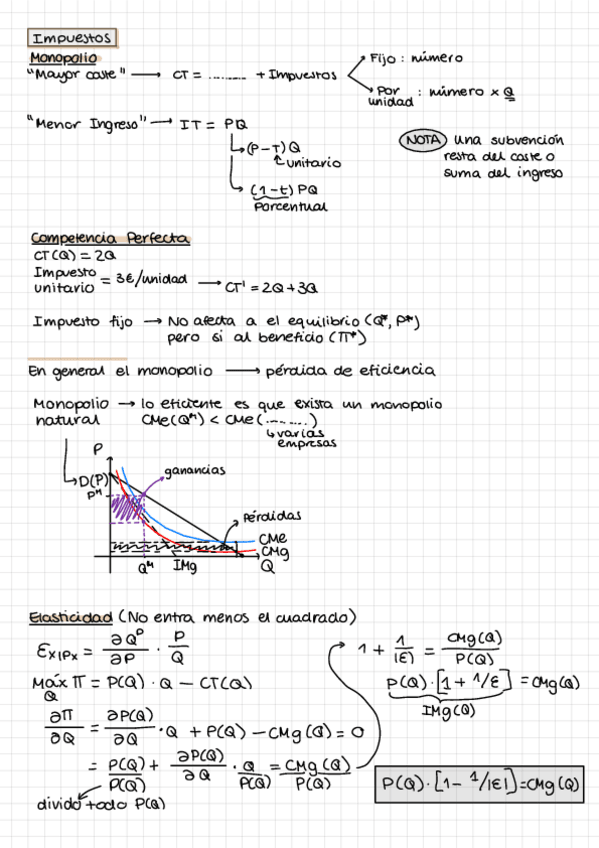 Impuestos
Monopolio
"Mayor coste" → CT = ......... + Impuestos
Fijo : número
Por unidad : número × Q
"Menor Ingreso" → IT = PQ
(P-T)Q
unitario
(1-t) PQ
Porcentual
NOTA una subvención
resta del coste o
suma del ingreso
Competencia Perfecta
CT(Q) = 2Q
Impuesto unitario = 3€/unidad → CT' = 2Q+3Q
Impuesto fijo → No afecta a el equilibrio (Q*, P*)
pero si al beneficio (π*)
En general el monopolio → pérdida de eficiencia
Monopolio → lo eficiente es que exista un monopolio
natural CMe(Qᴹ) < CMe(.......)
varias
empresas
P
D(P)
Pᴹ
ganancias
Pérdidas
CMe
CMg
Qᴹ IMg Q
Elasticidad (No entra menos el cuadrado)
εx|Px = ∂Qᴰ/∂P · P/Q
Máx π = P(Q) · Q - CT(Q)
Q
∂π/∂Q = ∂P(Q)/∂Q · Q + P(Q) - CMg(Q) = 0
= P(Q)/P(Q) + ∂P(Q)/∂Q · Q/P(Q) = CMg(Q)/P(Q)
divido todo P(Q)
1 + 1/|ε| = CMg(Q)/P(Q)
P(Q) · [1 + 1/ε] = CMg(Q)
IMg(Q)
P(Q) · [1 - 1/|ε|] = CMg(Q)